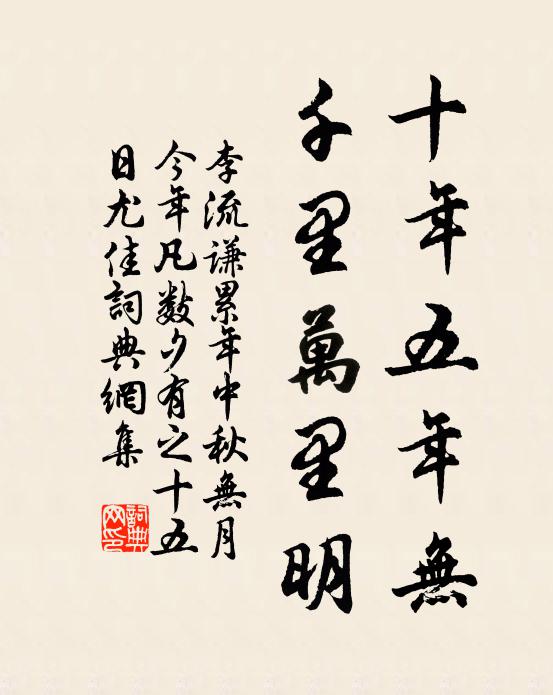 十年五年無
千里萬里明
李流謙累年中秋無月
今年凡數夕有之十五
日尤佳詞典網集
詞典
网印